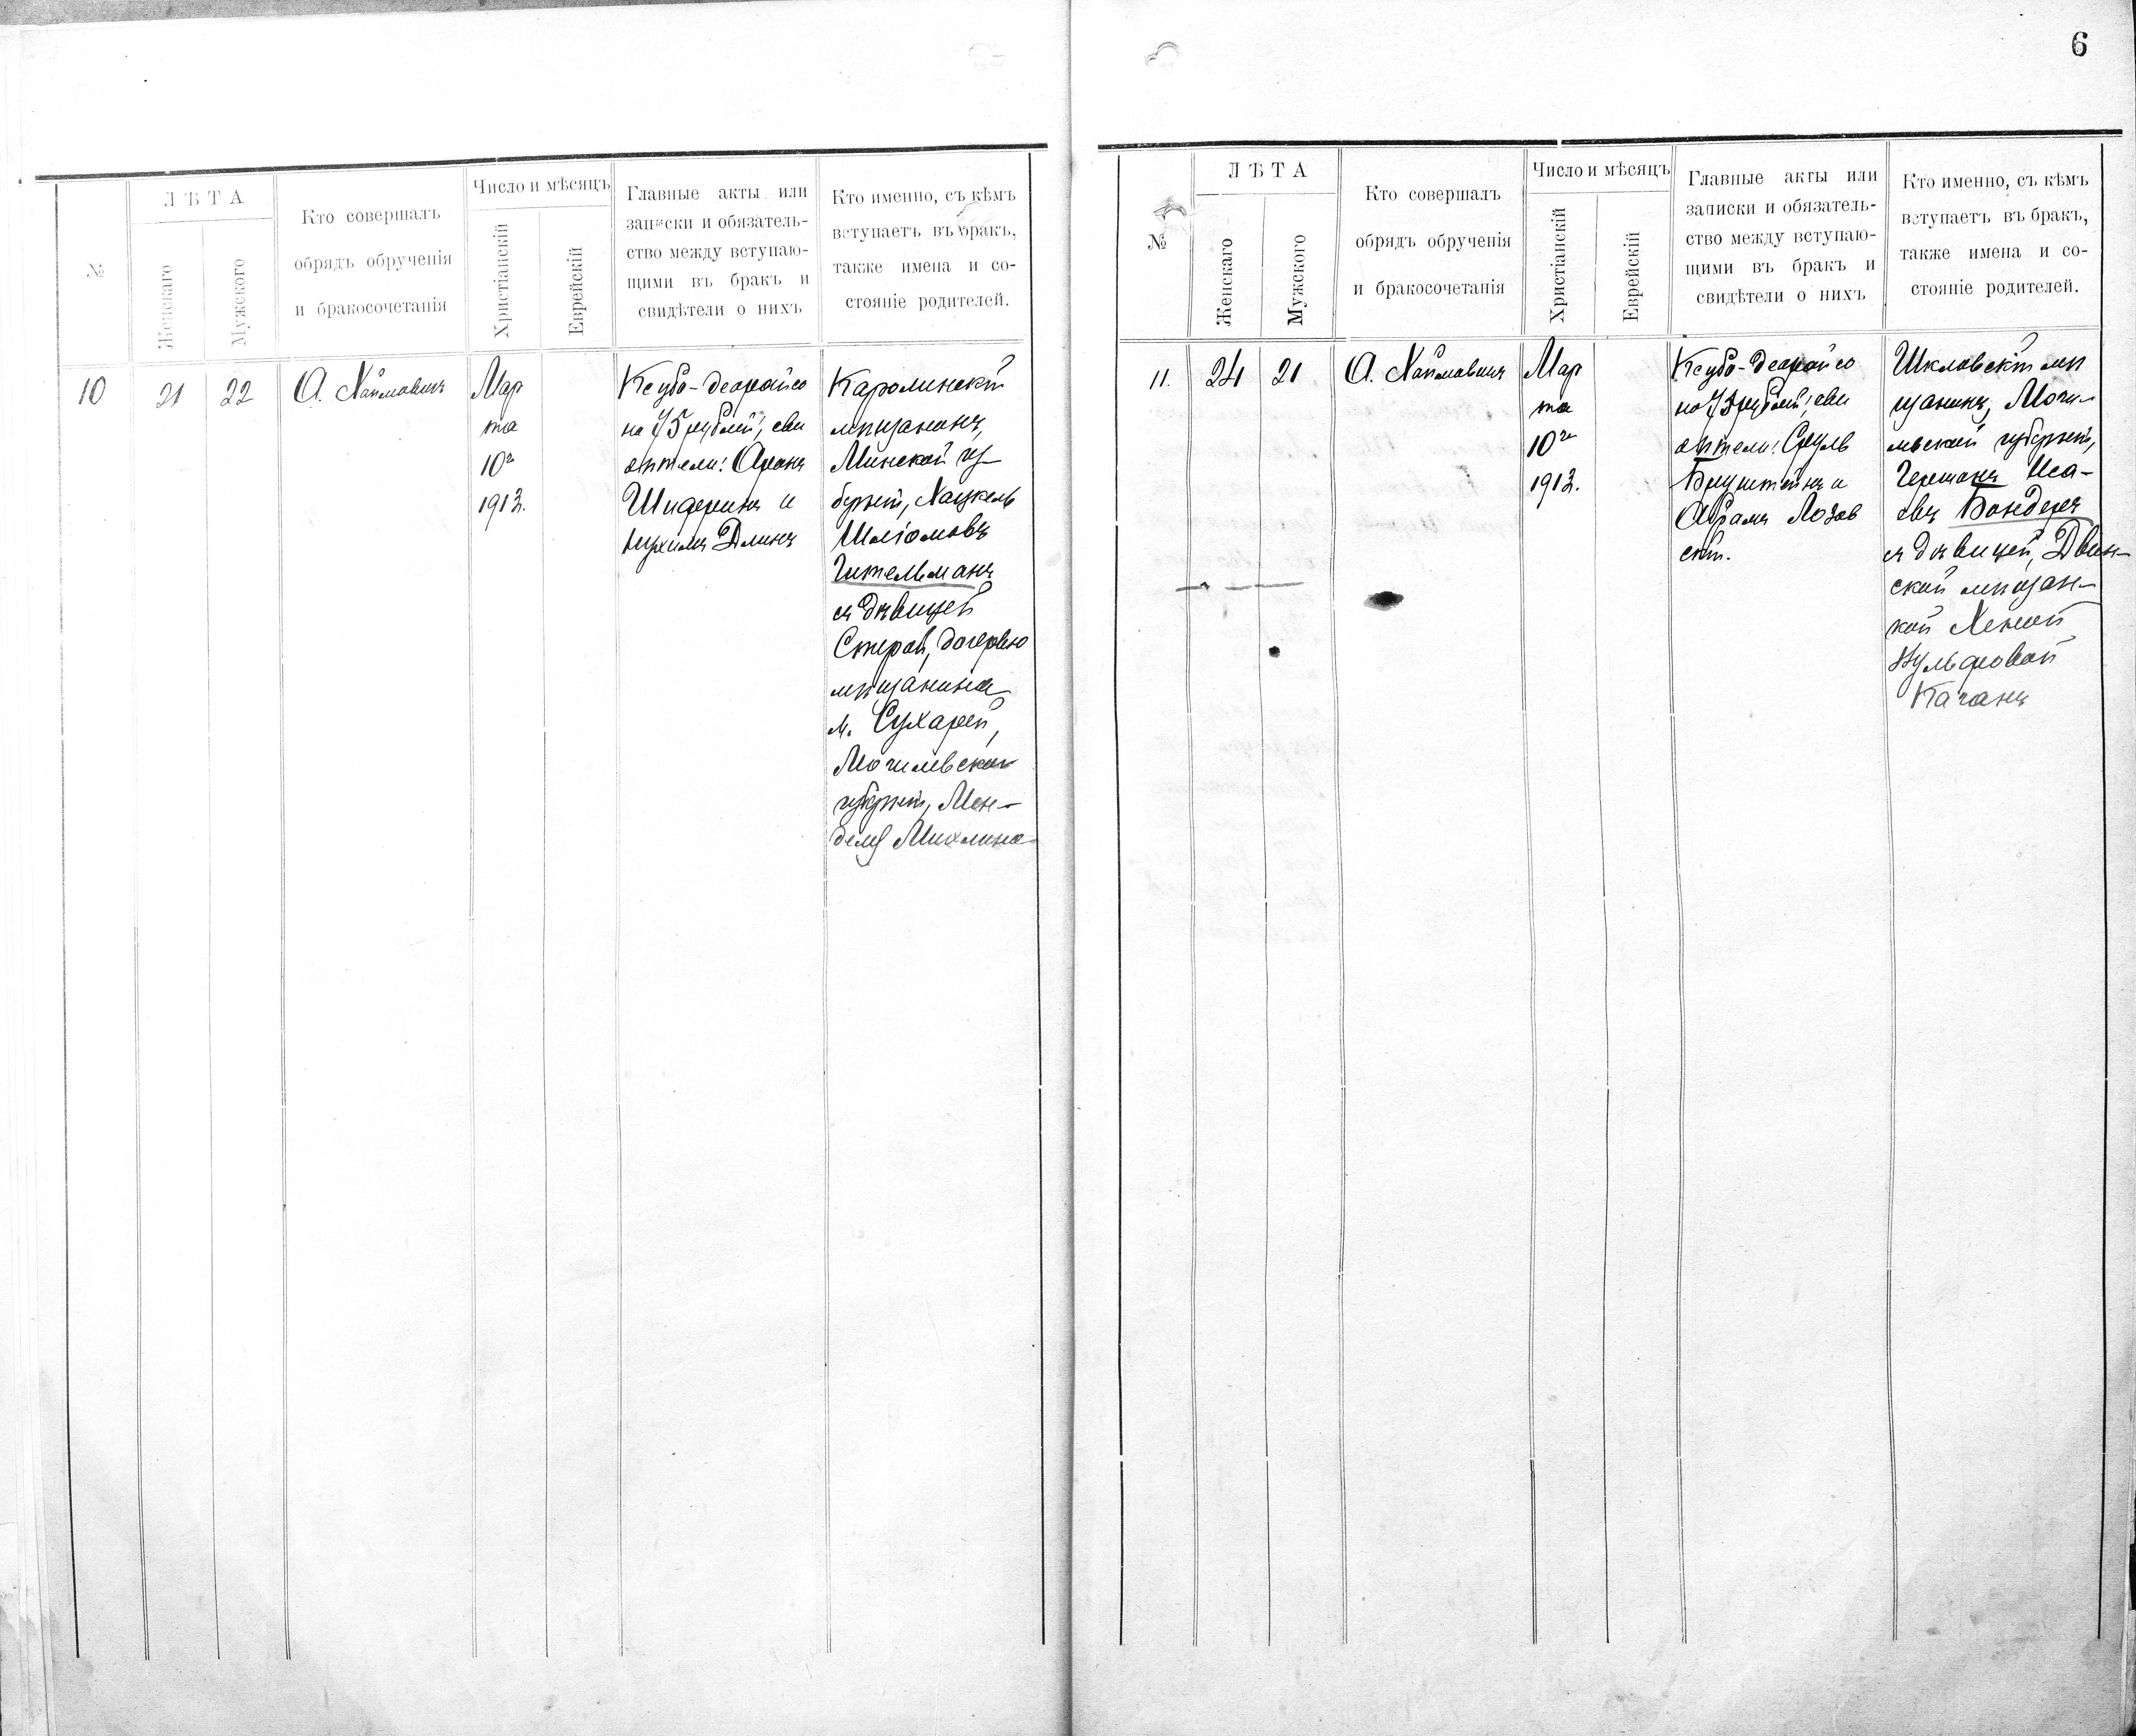 6
№
ЛѢТА
Женскаго
Мужского
Кто совершалъ
обрядъ обрученія
и бракосочетанія
Число и мѣсяцъ
Христіанскій
Еврейскій
Главные акты или
записки и обязатель-
ство между вступаю-
щими въ бракъ и
свидѣтели о нихъ
Кто именно, съ кѣмъ
вступаетъ въ бракъ,
также имена и со-
стояніе родителей.
10
21
22
А. Хаймовичъ
Мар
та
10го
1913.
Ксубо-деорайсо
на 75 рублей, сви
дѣтели: Аронъ
Шифринъ и
Длинъ
Каролинскій
мѣщанинъ,
Минской гу-
берніи, Хацкель
Шліомовъ
Гительманъ
съ дѣвицей
Стерой, дочерью
мѣщанина
м. Сухарей,
Могилевской
губерніи, Мен-
деля Михлина
№
ЛѢТА
Женскаго
Мужского
Кто совершалъ
обрядъ обрученія
и бракосочетанія
Число и мѣсяцъ
Христіанскій
Еврейскій
Главные акты или
записки и обязатель-
ство между вступаю-
щими въ бракъ и
свидѣтели о нихъ
Кто именно, съ кѣмъ
вступаетъ въ бракъ,
также имена и со-
стояніе родителей.
11.
24
21
А. Хаймовичъ
Мар
та
10го
1913.
Ксубо-деорайсо
на 75 рублей, сви
дѣтели: Сруль
Бруштейнъ и
Абрамъ Лозов
скій.
Шкловскій мѣ
щанинъ, Моги-
левской губерніи,
Германъ Иса-
евъ Бондеръ
съ дѣвицей, Двин-
ской мѣщан-
кой Хеной
Вульфовой
Каганъ